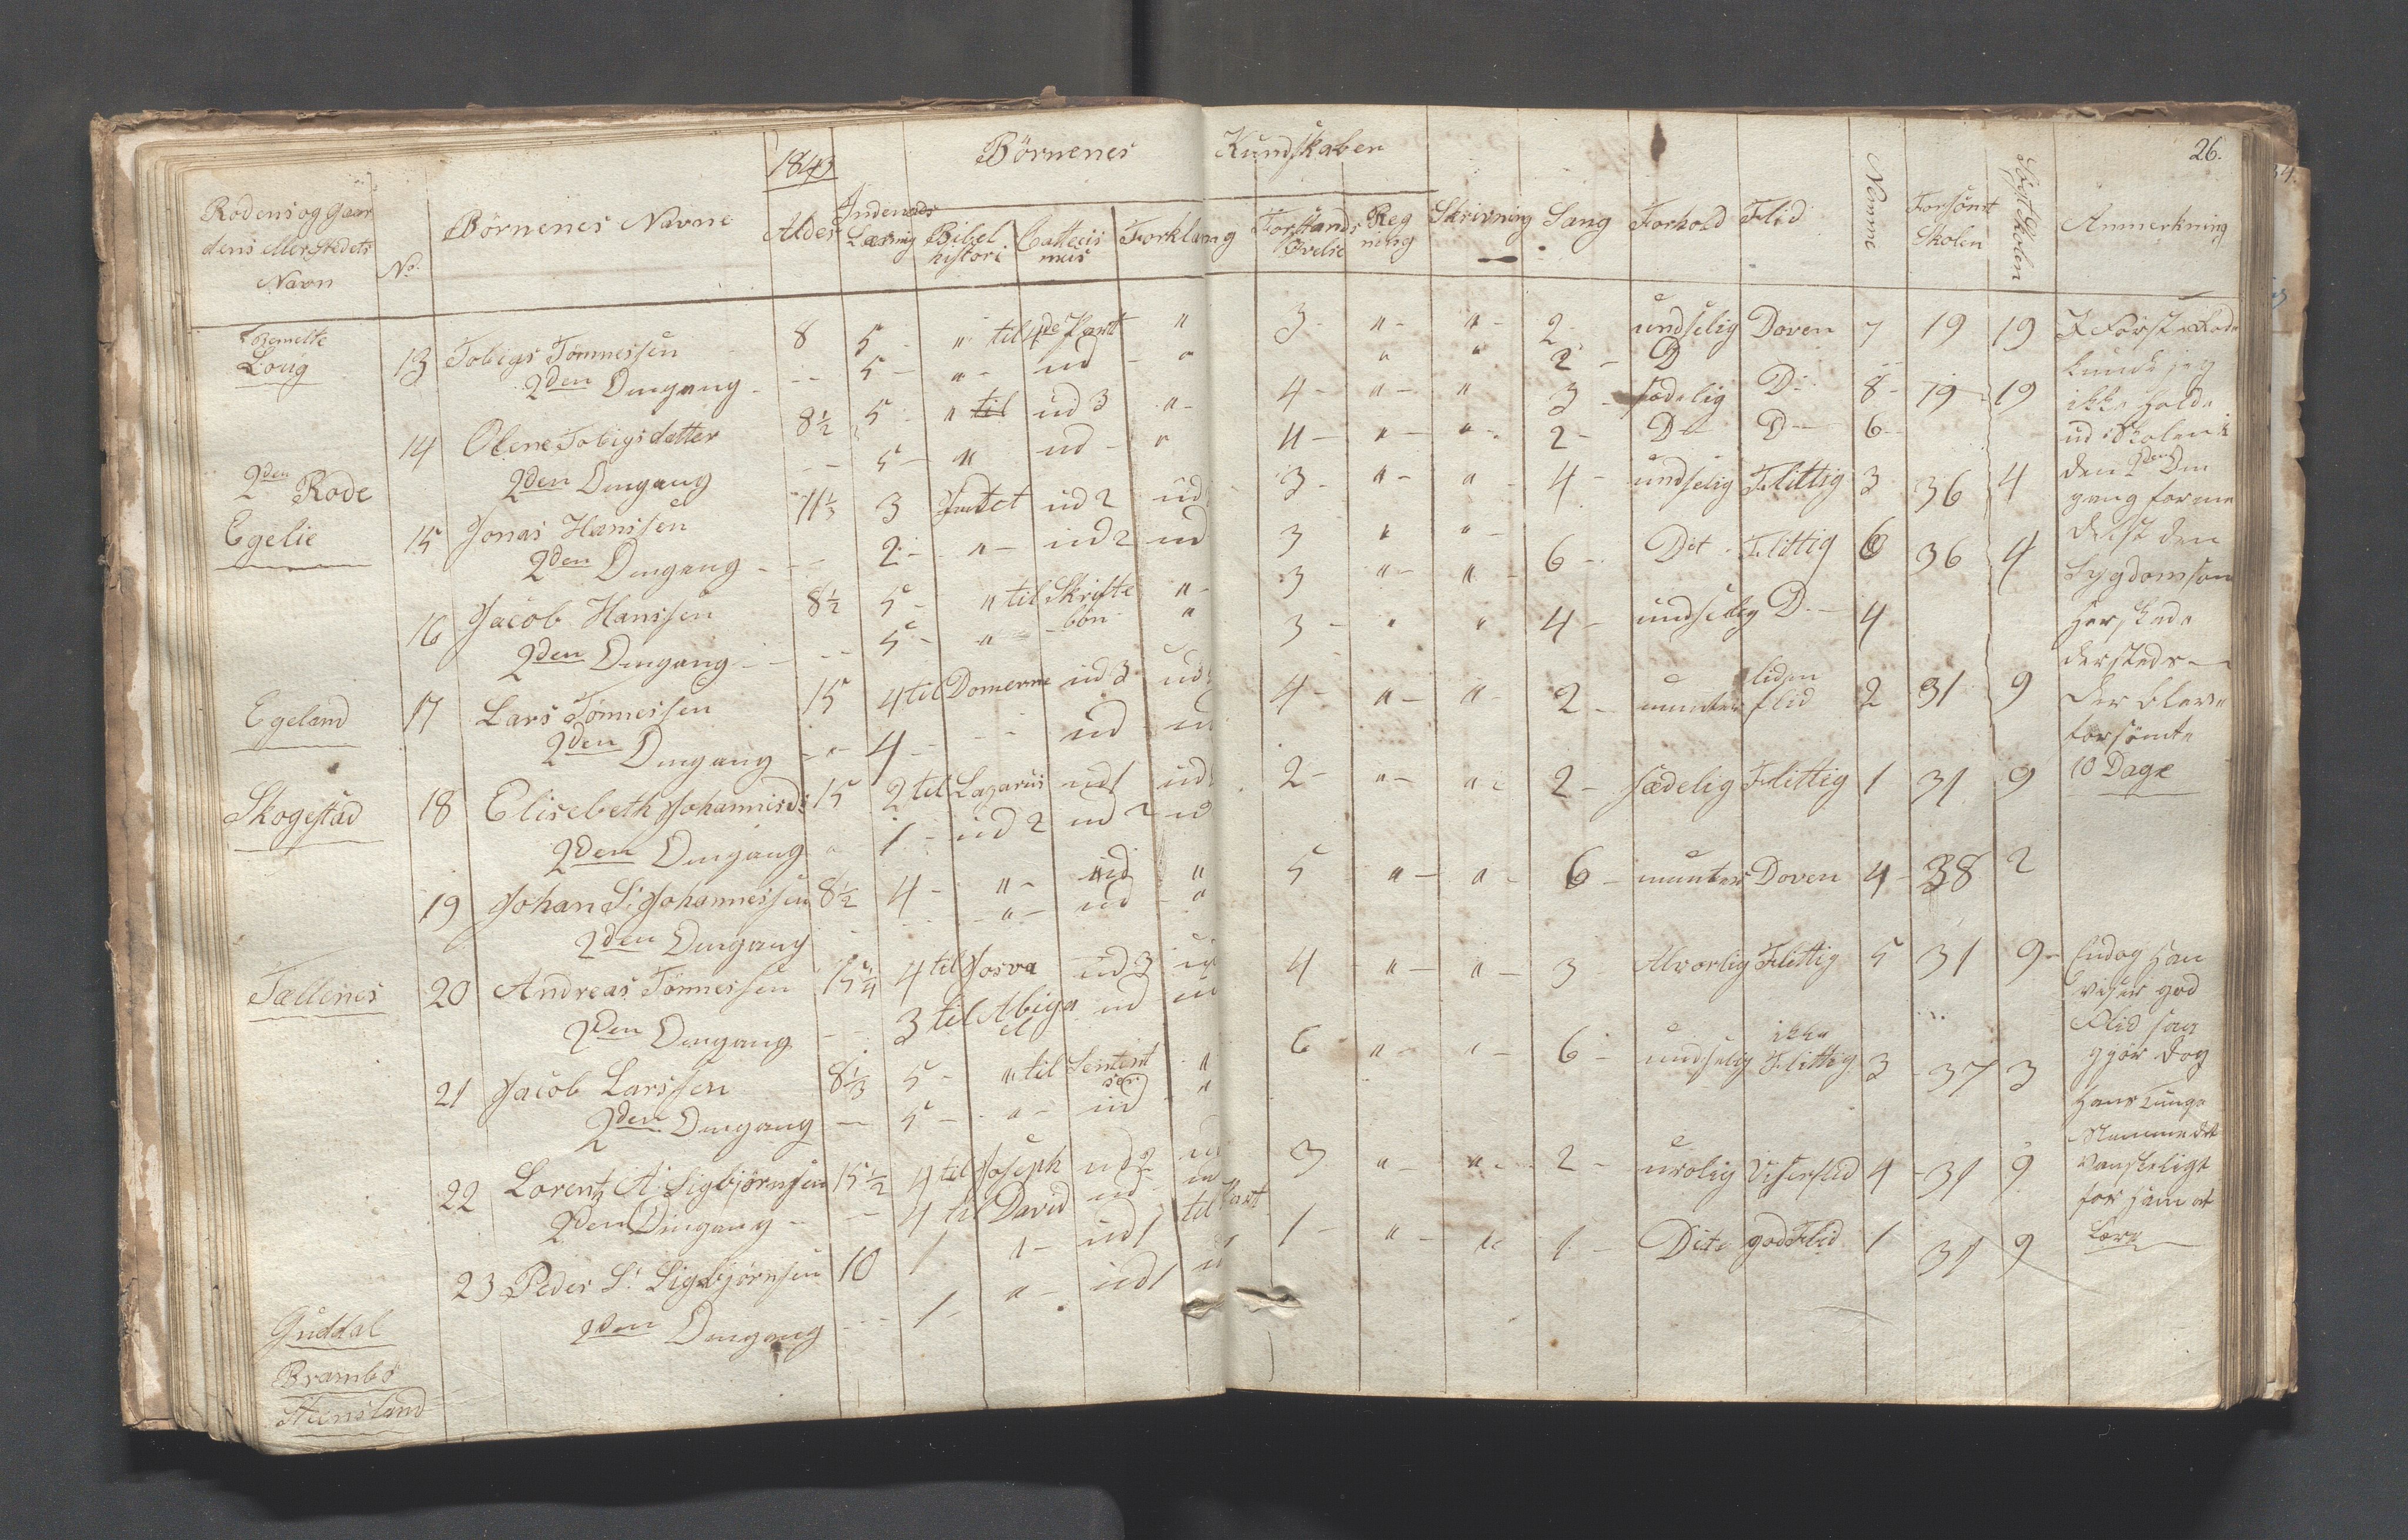 26.
1843 Börnenes Kundskaber
Rodens og Gaar
dens eller Stedets
Navn
No. Börnenes Navne Alder Indenads Læsning Bibel histori Cattecis mus Forklaring Forstands Övelse Reg ning Skrivning Sang Forhold Flid Nemme Forsömt Skolen Sögt Skolen Anmerkning
Loüg 13 Tobias Tönnessen 8 5 - " til 4de Part " 3 - " - " - 2 - undselig Doven 7 19 19 I Förste Rode
2den Omgang - - 5 - " - ud - " " " 2 - D kunde jeg
14 Olene Tobiasdatter 8½ 5 - " ud 3 " - 4 - " - " 3 - sædelig D - 8 - 19 - 19 ikke holde
2den Omgang - - 5 - " ud - " 4 - " - " - 2 - D - D - 6 - ud Skolen i
2den Rode
Egelie 15 Jonas Hanssen 11⅓ 3 Intet ud 2 ud 3 - " - " 4 - undselig Flittig 3 36 4 den 2den Om
gang forme
2den Omgang - - 2 - " - ud 2 ud 3 " " - 6 - Dit - Flittig 6 36 4 delst den
16 Jacob Hanssen 8½ 5 - " til Skrifte bön " - 3 " - " - Sygdom som
2den Omgang - - 5 - " - " 3 - " " 4 - undselig D - 4 herskede
dersteds -
Egeland 17 Lars Tönnessen 15 4 til Domerne ud 3 ud 4 - " - " - 2 - munter liden flid 2 31 9 der bleve
2den Omgang - - 4 - - - ud ud forsömte
Skogestad 18 Elisebeth Johannisdr 15 2 til Lazarus ud 1 ud 2 - " - " - 2 - sædelig Flittig 1 31 9 10 Dage
2den Omgang " 1 - ud 2 ud 2 ud
19 Johan S. Johannessen 8½ 4 - " - ud " 5 " - " - 6 - munter Doven 4 - 38 2
2den Omgang - " - ud - "
Tællenes 20 Andreas Tönnessen 15¼ 4 til Josva ud 3 ud 4 " - " - 3 Alvorlig Flittig 5 31 9 - Endog han
viser god
2den Omgang - - 3 til Abiga el ud ud Flid saa
21 Jacob Larssen 8⅓ 5 - " til Sentent ser " 6 " - " - 6 - undselig ikke Flittig 3 - 37 3 gjör dog
2den Omgang - 5 - " - ud " hans tunge
22 Lorentz A. Sigbjörnsen 15½ 4 til Joseph ud 2 ud 3 " - " - 2 - urolig viser flid 4 - 31 9 Nemme det
vanskeligt
2den Omgang - - 4 til David ud - ud for ham at
23 Peder S. Sigbjörnsen 10 1 " - ud 1 til Part 1 - " - " 1 - Dito god Flid 1 31 9 lære
2den Omgang - - 1 - " - ud 1 ud
Guddal
Brambö
Steensland